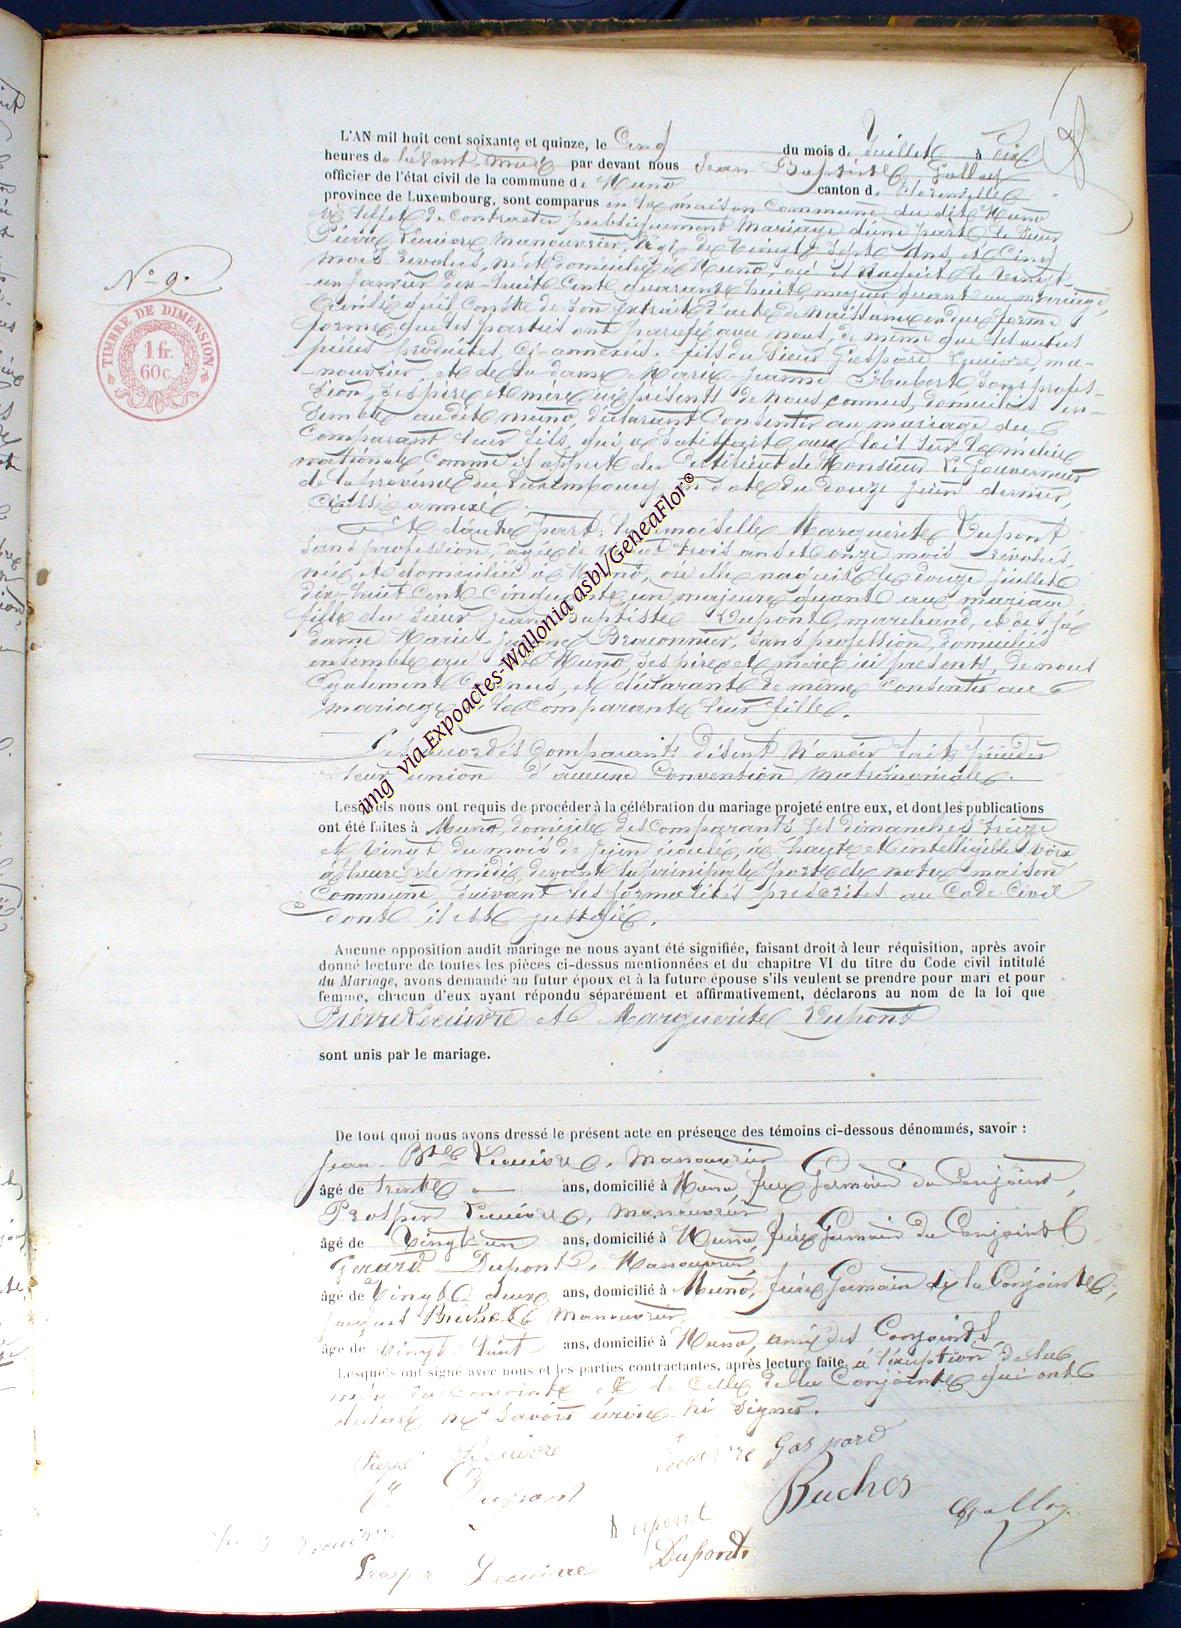 L'AN mil huit cent soixante et quinze, le Cinq du mois de Juillet à Dix
heures du levant midi par devant nous Jean Baptiste Galloy
officier de l'état civil de la commune de Muno canton de Florenville
province de Luxembourg, sont comparus en la maison Commune du dit Muno
à l'effet de Contracter publiquement Mariage d'une part le Sieur
Pierre Lecuivre Manouvrier, âgé de Vingt Sept Ans et Cinq
mois révolus, né et domicilié à Muno, où il naquit le vingt-
un Janvier Dix-huit Cent quarante huit, majeur quant au mariage,
N° 9.
TIMBRE DE DIMENSION.
1 fr.
60c.
ainsi qu'il Conste de Son Extrait d'acte de Naissance en due forme
forme, que les parties ont paraphé avec nous, de même que les autres
pièces produites, Ci-annexées. fils du Sieur Gaspard Lecuivre, ma-
-nouvrier et de la dame Marie-Jeanne Hubert Sans profes-
Sion, Ses père et mère ici présents de Nous Connus, domiciliés en-
Semble au dit Muno, déclarant Consentir au mariage du
Comparant leur fils, qui a Satisfait aux lois Sur la milice
nationale Comme il appert du Certificat de Monsieur le Gouverneur
de la province du Luxembourg en date du douze Juin dernier,
Ci annexé.
Et d'autre part, la Demoiselle Marguerite Dupont
Sans profession, âgée de vingt trois ans et onze mois révolus,
née et domiciliée à Muno, où elle naquit le douze Juillet
dix-huit Cent Cinquante un, majeure quant au mariage,
fille du Sieur Jean Baptiste Dupont, marchand, et de la
dame Marie Jeanne Braconnier, Sans profession, domiciliés
ensemble au dit Muno, Ses père et mère ici présents, de nous
Egalement Connus, et déclarant de même Consentir au
mariage de la Comparante leur fille.
Les Comparants disent N'avoir fait précéder
leur union d'aucune Convention Matrimoniale.
Lesquels nous ont requis de procéder à la célébration du mariage projeté entre eux, et dont les publications
ont été faites à Muno, domicile des Comparants les dimanches treize
et Vingt du mois de Juin écoulé, à haute et intelligible voix
à l'heure de midi, devant la principale porte de notre maison
Commune Suivant les formalités prescrites au Code Civil
dont il est justifié.
Aucune opposition audit mariage ne nous ayant été signifiée, faisant droit à leur réquisition, après avoir
donné lecture de toutes les pièces ci-dessus mentionnées et du chapitre VI du titre du Code civil intitulé
du Mariage, avons demandé au futur époux et à la future épouse s'ils veulent se prendre pour mari et pour
femme, chacun d'eux ayant répondu séparément et affirmativement, déclarons au nom de la loi que
Pierre Lecuivre Et Marguerite Dupont
sont unis par le mariage.
De tout quoi nous avons dressé le présent acte en présence des témoins ci-dessous dénommés, savoir :
Jean-Bte Lecuivre, Manouvrier
âgé de trente ans, domicilié à Muno, frère Germain du Conjoint,
Prosper Lecuivre, manouvrier
âgé de Vingt un ans, domicilié à Muno, frère Germain du Conjoint
Gérard Dupont, Manouvrier,
âgé de Vingt deux ans, domicilié à Muno, frère Germain de la Conjointe,
Manouvrier,
âgé de Vingt huit ans, domicilié à Muno, ami des Conjoints
Lesquels ont signé avec nous et les parties contractantes, après lecture faite, à l'exception de la
mère du Conjoint et de Celle de la Conjointe qui ont
déclaré ne Savoir écrire ni Signer.
Pierre Lecuivre Lecuivre Gaspard
Mte Dupont Buchet Galloy
Dupont
J. B. Lecuivre Dupont
Prosper Lecuivre
img via Expoactes-Wallonia asbl/GeneaFlor®